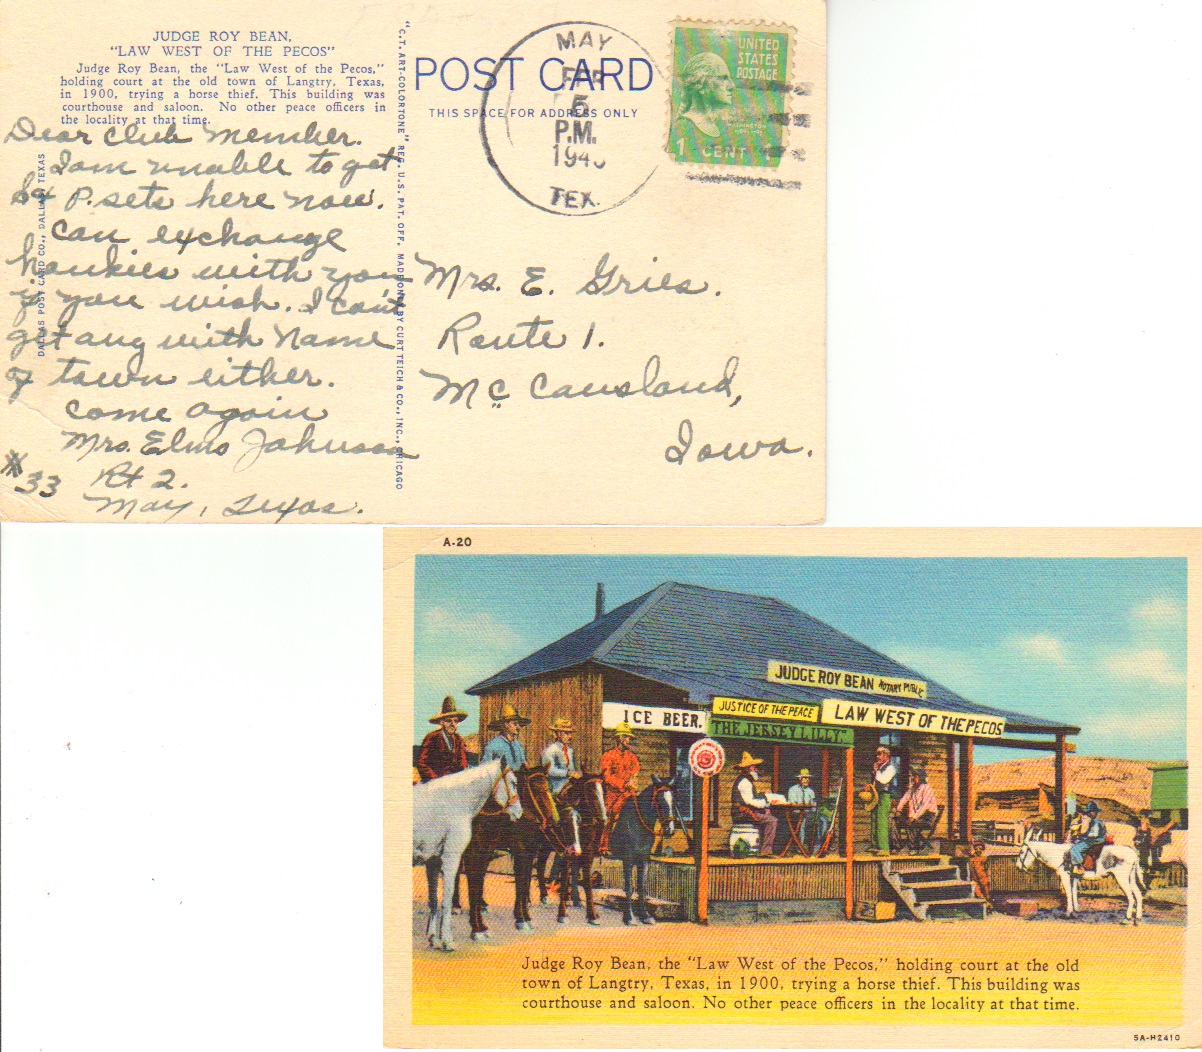 JUDGE ROY BEAN,
"LAW WEST OF THE PECOS"
Judge Roy Bean, the "Law West of the Pecos,"
holding court at the old town of Langtry, Texas,
in 1900, trying a horse thief. This building was
courthouse and saloon. No other peace officers in
the locality at that time.
Dear club member.
I am unable to get
S & P. sets here now.
Can exchange
hankies with you
if you wish. I can't
get any with name
of town either.
Come again
Mrs. Elmo Johnson
Rt 2.
#33
May, Texas.
DALLAS POST CARD CO., DALLAS, TEXAS
"C.T. ART-COLORTONE" REG. U.S. PAT. OFF. MADE ONLY BY CURT TEICH & CO., INC., CHICAGO
POST CARD
THIS SPACE FOR ADDRESS ONLY
MAY
FEB
5
P.M.
TEX.
UNITED
STATES
POSTAGE
WASHINGTON
1 CENT 1
Mrs. E. Gries.
Route 1.
Mc Causland,
Iowa.
A-20
JUDGE ROY BEAN NOTARY PUBLIC
JUSTICE OF THE PEACE
LAW WEST OF THE PECOS
ICE BEER.
THE JERSEY LILLY."
Judge Roy Bean, the "Law West of the Pecos," holding court at the old
town of Langtry, Texas, in 1900, trying a horse thief. This building was
courthouse and saloon. No other peace officers in the locality at that time.
5A-H2410